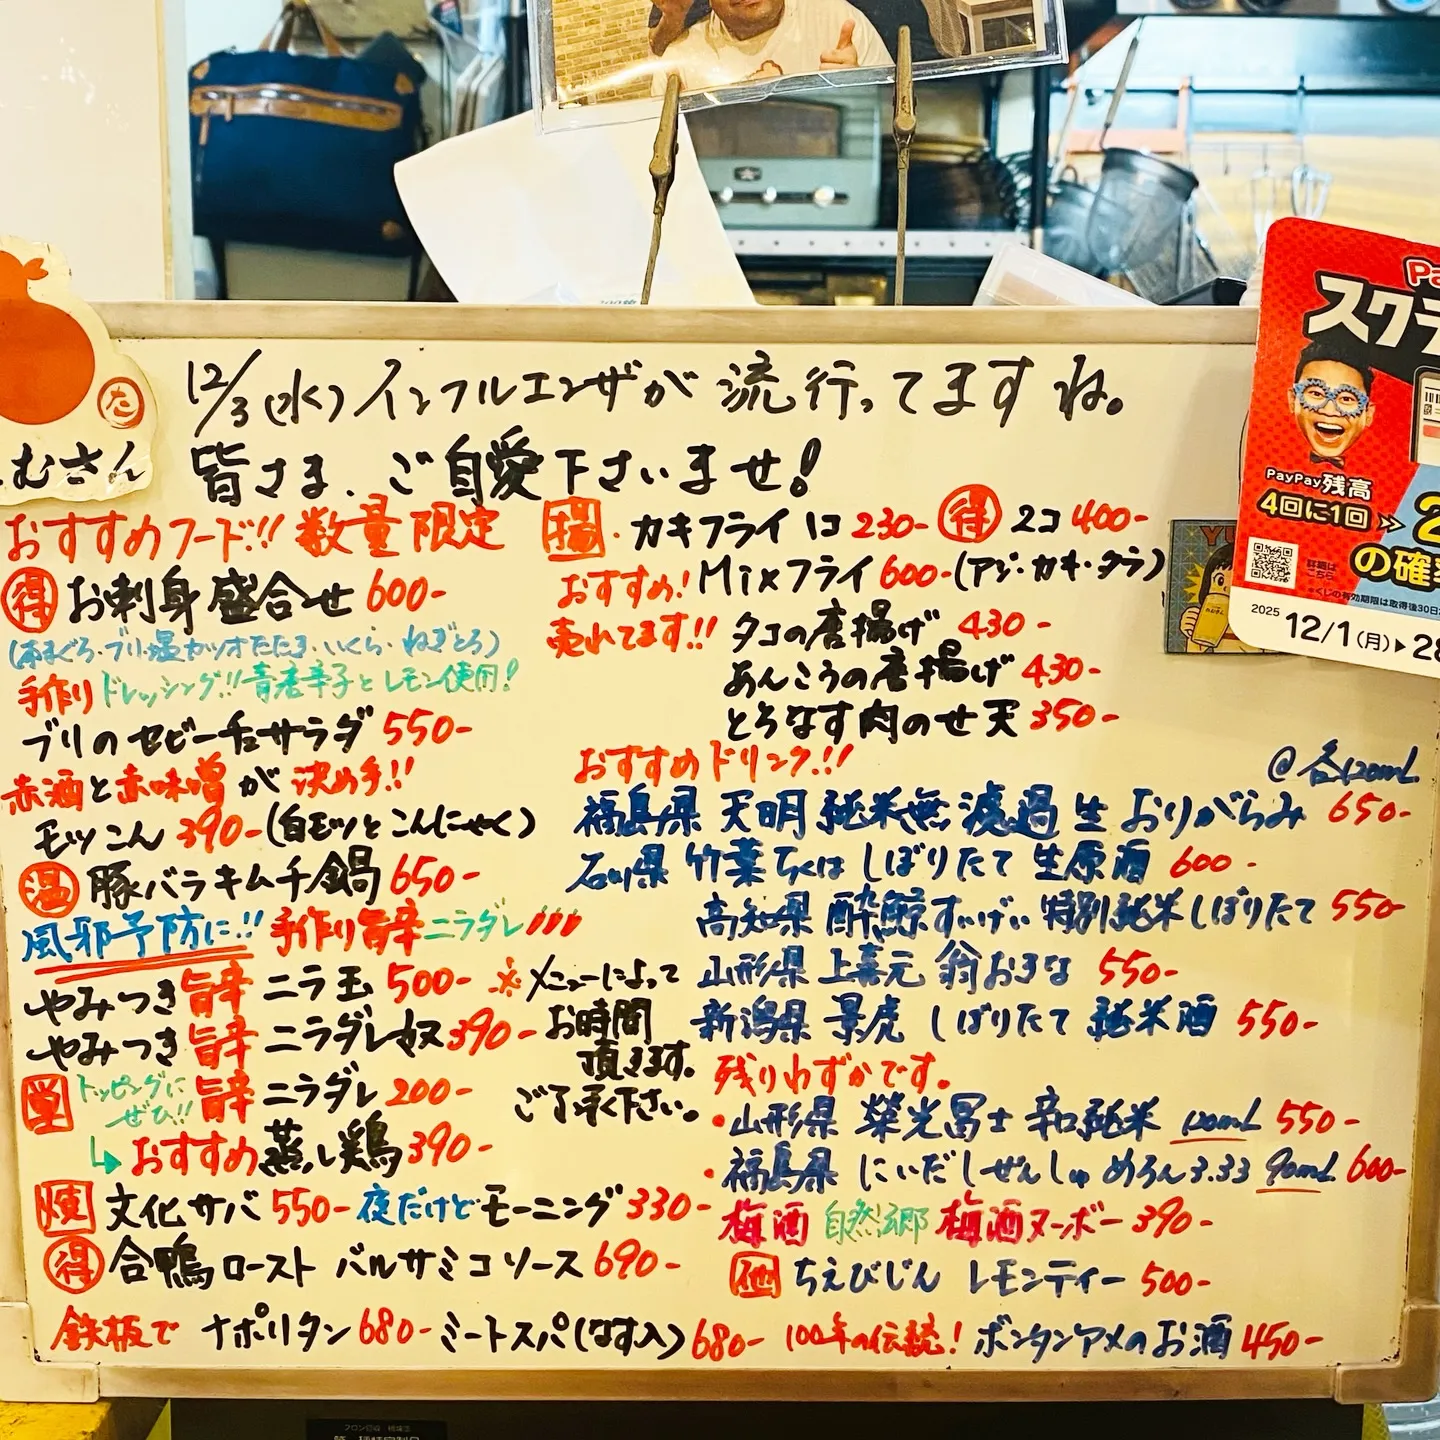 12/3(水)インフルエンザが流行ってますね。
皆さま、ご自愛下さいませ!
たむさん
おすすめフード!! 数量限定
得 お刺身盛合せ 600-
(本まぐろ・ブリ・塩カツオたたき・いくら・ねぎとろ)
手作りドレッシング!!青唐辛子とレモン使用!
ブリのセビーチェサラダ 550-
赤酒と赤味噌が決め手!!
モツこん 390-(白モツとこんにゃく)
温 豚バラキムチ鍋 650-
風邪予防に!! 手作り旨辛ニラダレ
やみつき旨辛ニラ玉 500-
やみつき旨辛ニラダレ奴 390-
単 トッピングにぜひ!! 旨辛ニラダレ 200-
おすすめ蒸し鶏 390-
燻 文化サバ 550- 夜だけどモーニング 330-
得 合鴨ロースト バルサミコソース 690-
鉄板で ナポリタン 680- ミートスパ(なす入) 680-
※メニューによって
お時間
頂きます。
ご了承下さい。
揚・カキフライ 1コ 230- 得 2コ 400-
おすすめ! Mixフライ 600-(アジ・カキ・タラ)
売れてます!! タコの唐揚げ 430-
あんこうの唐揚げ 430-
とろなす肉のせ天 350-
おすすめドリンク!!
@各120mL
福島県 天明 純米無濾過生 おりがらみ 650-
石川県 竹葉 ちくは しぼりたて 生原酒 600-
高知県 酔鯨すいげい 特別純米しぼりたて 550-
山形県 上喜元 翁おきな 550-
新潟県 景虎 しぼりたて 純米酒 550-
残りわずかです。
・山形県 榮光冨士 辛口純米 120mL 550-
・福島県 にいだしぜんしゅ めろん3.33 90mL 600-
梅酒 自然郷 梅酒ヌーボー 390-
他 ちえびじん レモンティー 500-
100年の伝統! ボンタンアメのお酒 450-
スクラ
PayPay残高
4回に1回
の確
詳細はこちら
※くじの有効期限は取得後30日
2025
12/1(月)▶28